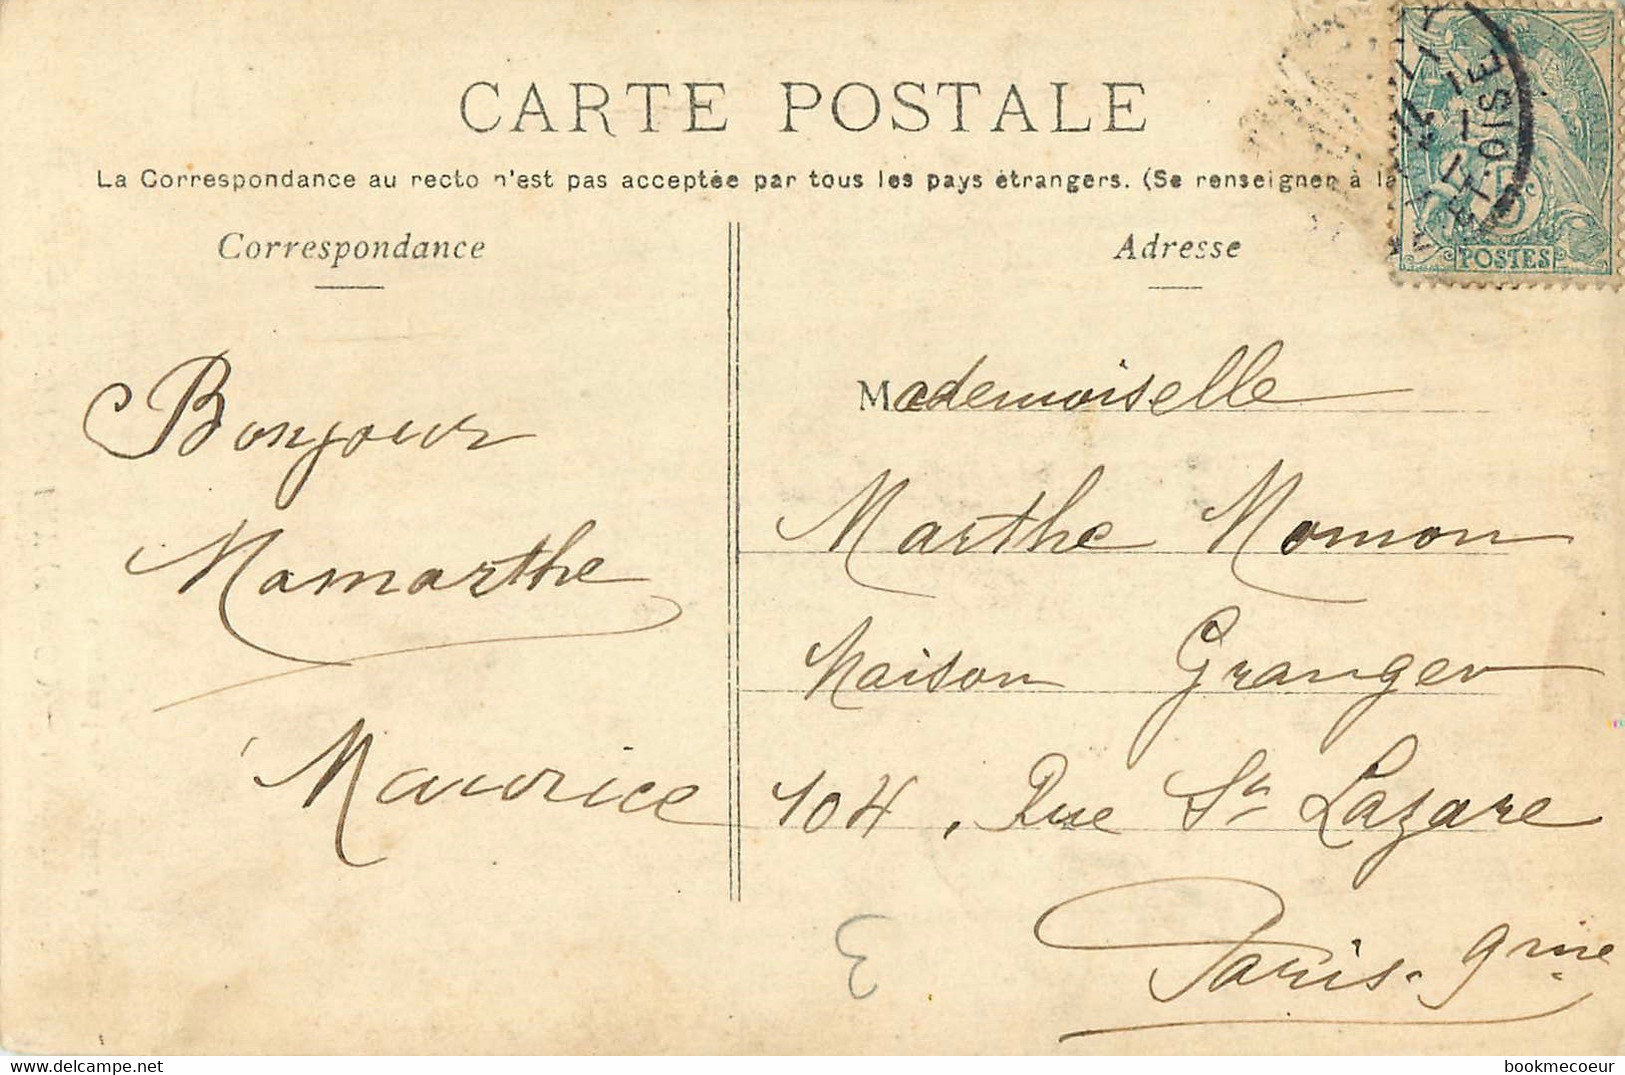 CARTE POSTALE
La Correspondance au recto n'est pas acceptée par tous les pays étrangers. (Se renseigner à la
Correspondance
Adresse
ET-OISE
5c
POSTES
Bonjour
Mamarthe
Maurice
Mademoiselle
Marthe Momon
Maison Granger
104, Rue St Lazare
Paris. 9me
3
bookmecoeur